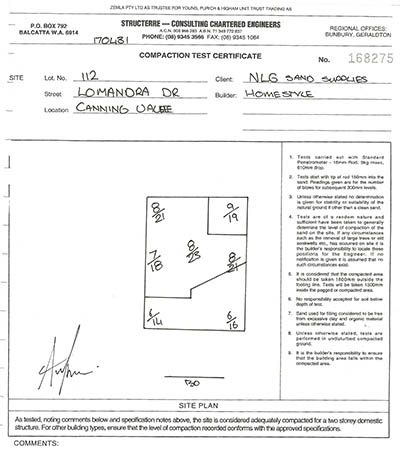 ZEMLA PTY LTD AS TRUSTEE FOR YOUNG, PURICH & HIGHAM UNIT TRUST TRADING AS
STRUCTERRE – CONSULTING CHARTERED ENGINEERS
P.O. BOX 792
BALCATTA W.A. 6914
PHONE: (08) 9345 3566 FAX: (08) 9345 1064
REGIONAL OFFICES:
BUNBURY, GERALDTON
170431
COMPACTION TEST CERTIFICATE
No. 168275
SITE Lot. No. 112 Client: NLG SAND SUPPLIES
Street LOMANDRA DR Builder: HOMESTYLE
Location CANNING VALE
1. Tests carried out with Standard Penetrometer - 16mm Rod, 9kg mass, 610mm drop.
2. Tests start with tip of rod 150mm into the sand. Readings given are for the number of blows for subsequent 300mm levels.
3. Unless otherwise stated no determination is given for stability or suitability of the natural ground if other than a clean sand.
4. Tests are of a random nature and sufficient have been taken to generally determine the level of compaction of the sand on the site. If any circumstances such as the removal of large trees or old soakwells etc., has occurred on site it is the builder's responsibility to locate these positions for the Engineer. If no notification is given it is assumed that no such circumstances exist.
5. It is considered that the compacted area should be taken 1500mm outside the footing line. Tests will be taken 1500mm inside the pegged or compacted area.
6. No responsibility accepted for soil below depth of test.
7. Sand used for filling considered to be free from excessive clay and organic material unless otherwise stated.
8. Unless otherwise stated, tests are performed in undisturbed compacted ground.
9. It is the builder's responsibility to ensure that the building area falls within the compacted area.
8/21
9/19
7/18
8/23
8/21
6/14
6/16
SITE PLAN
As tested, noting comments below and specification notes above, the site is considered adequately compacted for a two storey domestic
structure. For other building types, ensure that the level of compaction recorded conforms with the approved specifications.
COMMENTS: